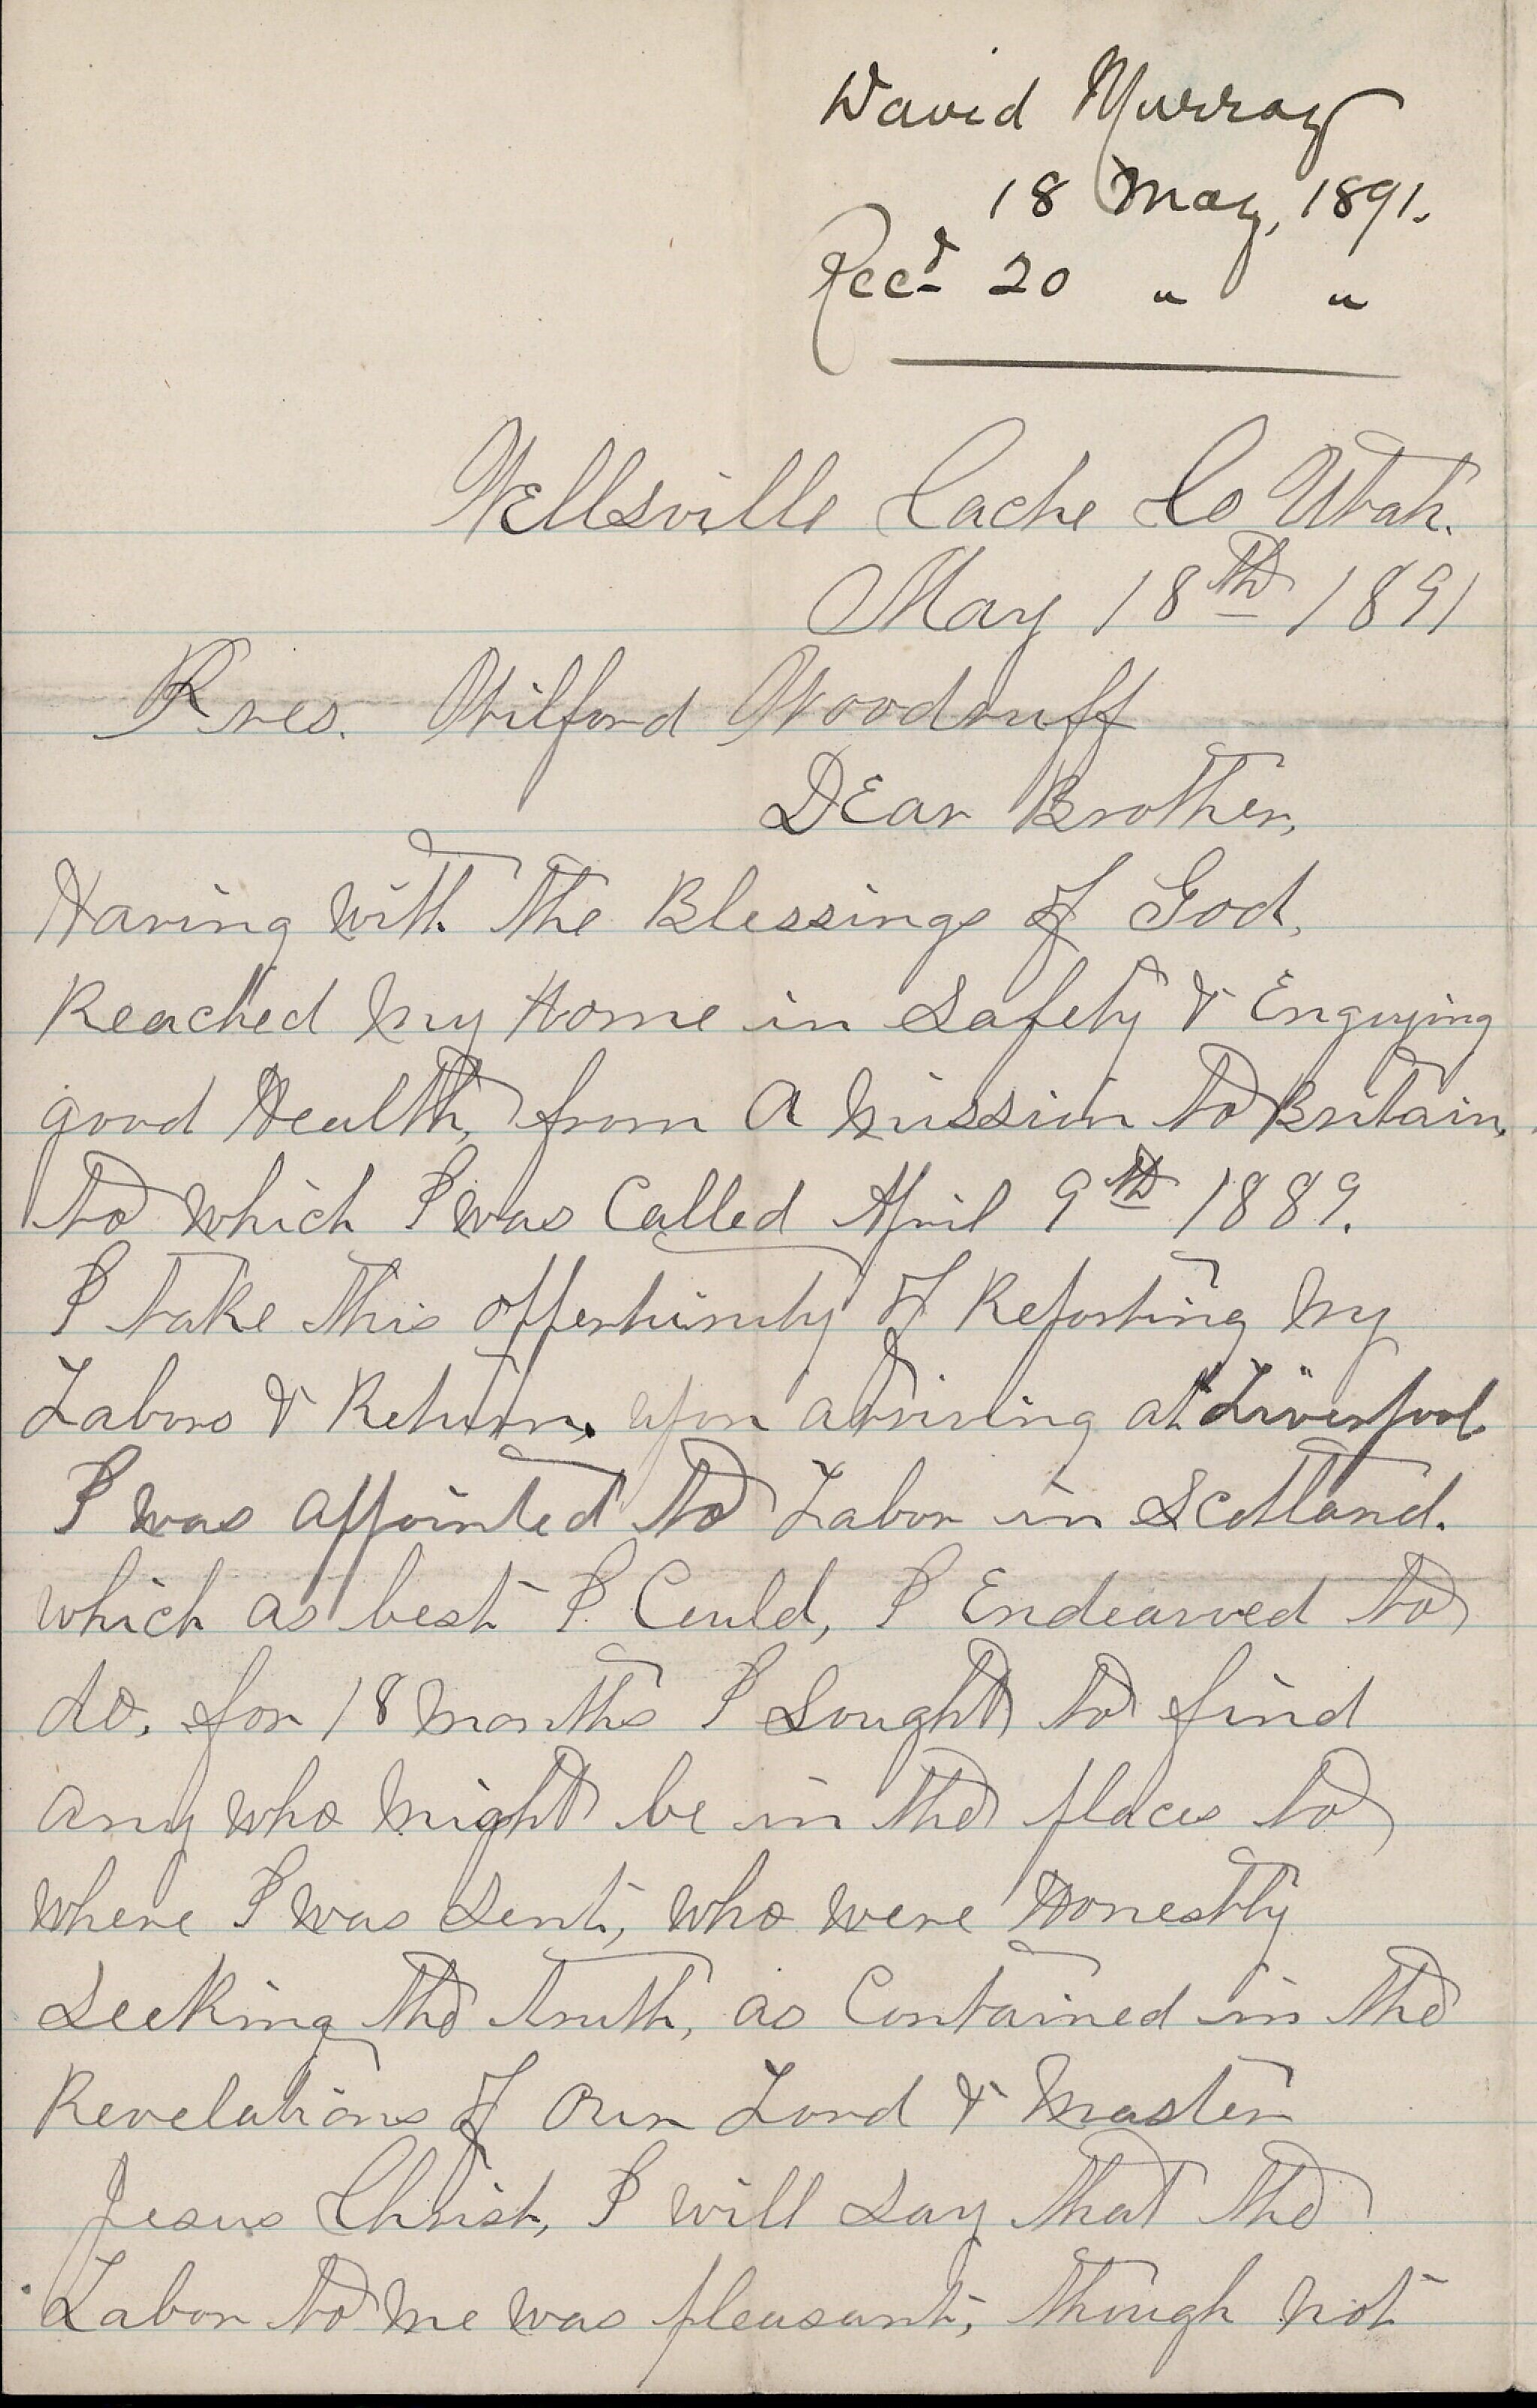 David Murray
18 May, 1891.
Recd 20 " "
Wellsville Cache Co Utah.
May 18th 1891
Pres. Wilford Woodruff
DEar Brother,
Having with the Blessings of God,
Reached my Home in Safety & Enguying
good Health, from A mission to Britain,
to which I was Called April 9th 1889.
I take this oppertunity of Reporting my
Labors & Return. upon arriving at Liverpool.
I was appointed to Labor in Scotland.
which as best I Could, I Endearved to
do. for 18 months I Sought to find
any who might be in the places to
where I was Sent, who were Honestly
Seeking the truth, as Contained in the
Revelations of Our Lord & Master
Jesus Christ, I will Say that the
Labor to me was pleasant, though not